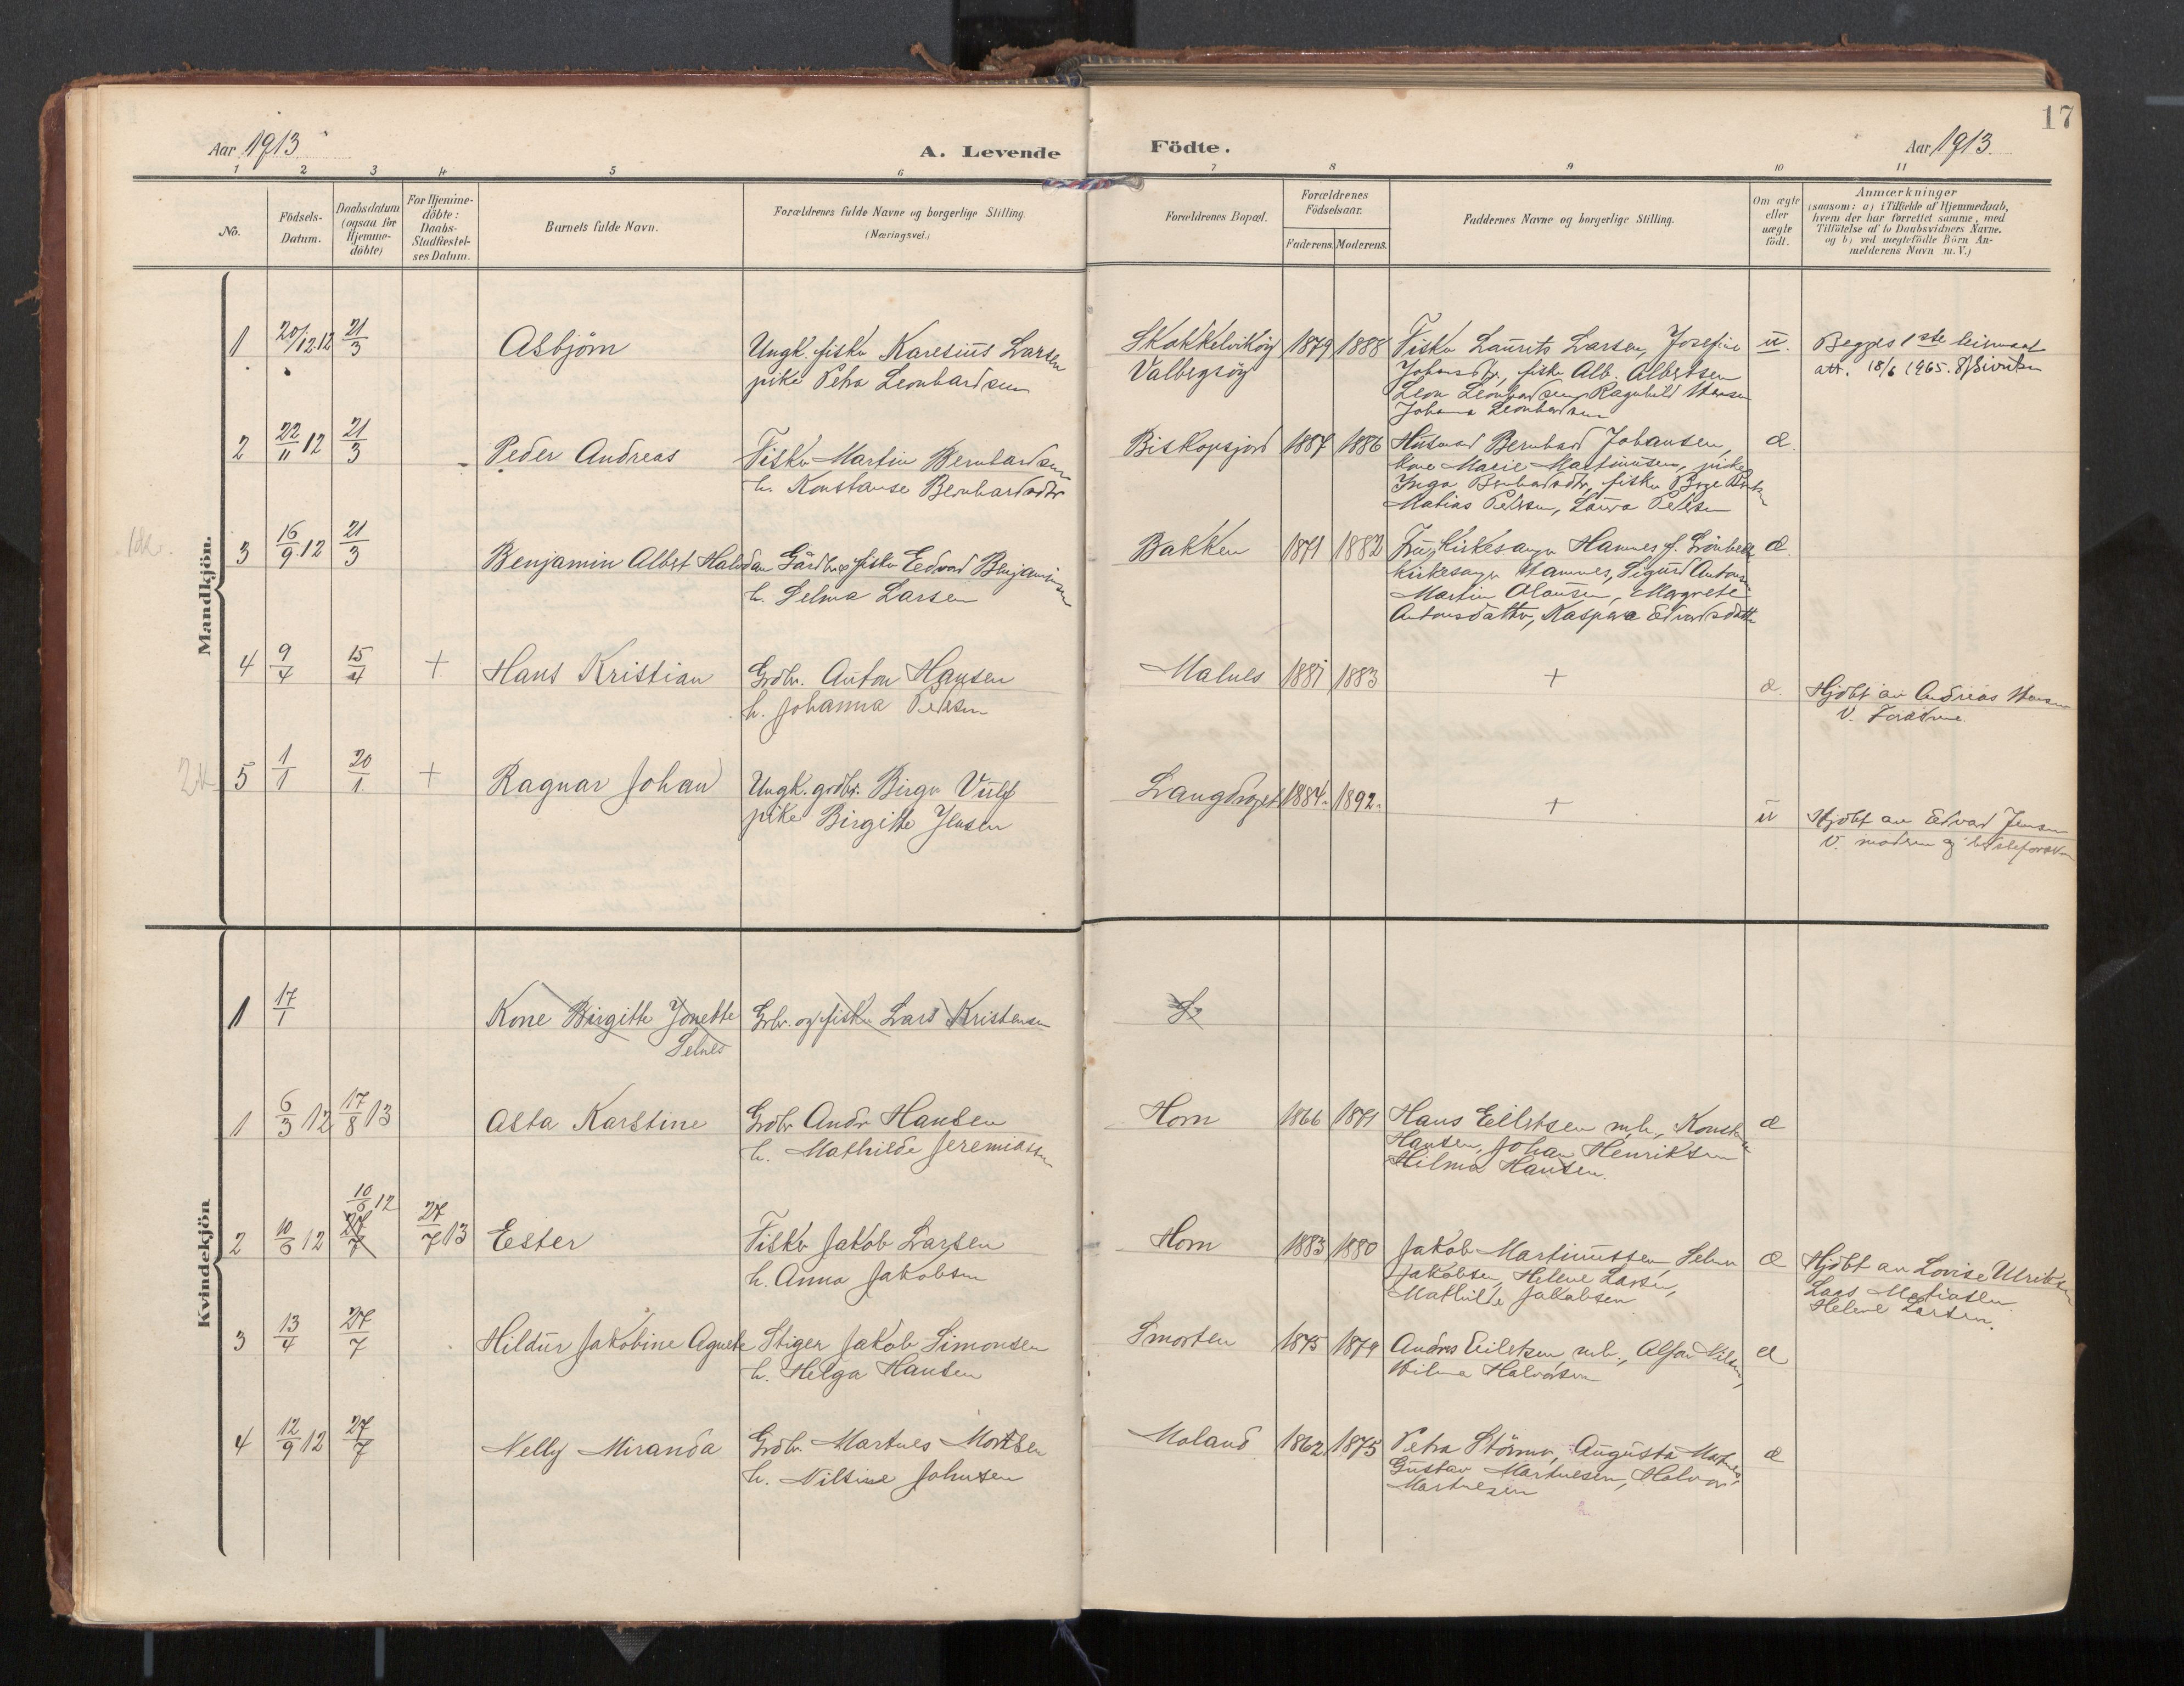 17
Aar 1913
A. Levende
Födte.
Aar 1913.
1 2 3 4 5 6 7 8 9 10 11
No.
Födsels-
Datum.
Daabsdatum
(ogsaa for
Hjemme-
döbte)
For Hjemme-
döbte:
Daabs-
Stadfæstel-
ses Datum.
Barnets fulde Navn.
Forældrenes fulde Navne og borgerlige Stilling.
(Næringsvei.)
Forældrenes Bopæl.
Forældrenes
Födselsaar.
Faderens. Moderens.
Faddernes Navne og borgerlige Stilling.
Om ægte
eller
uægte
födt.
Anmærkninger
(saasom: a) i Tilfælde af Hjemmedaab,
hvem der har forrettet samme, med
Tilföielse af to Daabsvidners Navne.
og b) ved uægtefödte Börn An-
melderens Navn m. V.)
Mandkjön.
1 20/12 12 21/3 Asbjörn
Ungk. fisker Karesius Larsen
pike Petra Leonhardsen
Valbergsög
1879 1888
Fisker Laurits Larsen, Josefine
Johansdtr, fisker Alb. Albertsen
Leon Leonhardsen, Ragnhild Hansen
Johanna Leonhardsen
u.
Begges 1ste leiermaal
att. 18/6 1965.
2 22/11 12 21/3 Peder Andreas
Fisker Martin Bernhardsen
h. Konstanse Bernhardsdtr
Biskopsjord 1887 1886
Husmand Bernhard Johansen,
kone Marie Martinusen, pike
Inga Bernhardsdtr, fisker
Matias Petersen, Laura Petersen
æ.
3 16/9 12 21/3 Benjamin Albert Halvdan
Gårdbr. fisker Edvard Benjaminsen
h. Selma Larsen
Bakken 1871 1882
Fru Kirkesanger Hamnes f. Grönbeck
kirkesanger Hamnes, Sigurd Antonsen
Martin Olausen, Margrete
Antonsdatter, Kaspara Edvardsdatter
æ.
4 9/4 15/4 + Hans Kristian
Grdbr. Anton Hansen
h. Johanna Petersen
Malnes 1881 1883 + æ.
Hjdbt av Andreas Hansen
v. Forældrene.
5 1/1 20/1 + Ragnar Johan
Ungk. grdbr. Birger Vulf
pike Birgitte Jensen
1884. 1892. + u
Hjdbt av Edvard Jensen
v. moderen og
Kvindekjön
1 17/1 Kone Birgitte Jonette
Selnes
Grbr. og fisker Lars Kristensen
1 6/3 12 17/8 13 Asta Karstine
Grdbr Andr Hansen
h. Mathilde Jeremiassen
Horn 1866 1871
Hans Eilertsen m.h., Konst
Hansen, Johan Henriksen
Hilma Hansen.
æ
2 10/6 12 10/6 12 27/7 27/7 13 Ester
Fisker Jakob Larsen
h. Anna Jakobsen
Horn 1883 1880
Jakob Martinussen, Selma
Jakobsen, Helene Larsen,
Mathilde Jakobsen
æ
Hjdbt av Lovise Ulriksen
Lars Matiassen.
Helene Larsen.
3 13/4 27/7 Hildur Jakobine Agnete
Stiger Jakob Simonsen
h. Helga Hansen
Smorten 1875 1879
Andreas Eilertsen m.h., Alfon Nilsen,
Wilma Halvorsen
æ
4 12/9 12 27/7 Nelly Miranda
Grdbr. Martnes Mortsen
h. Nilsine Johnsen
Moland 1862 1875
Petra Störmer, Augusta
Gustav Martnesen, Halvor
Martnesen
æ